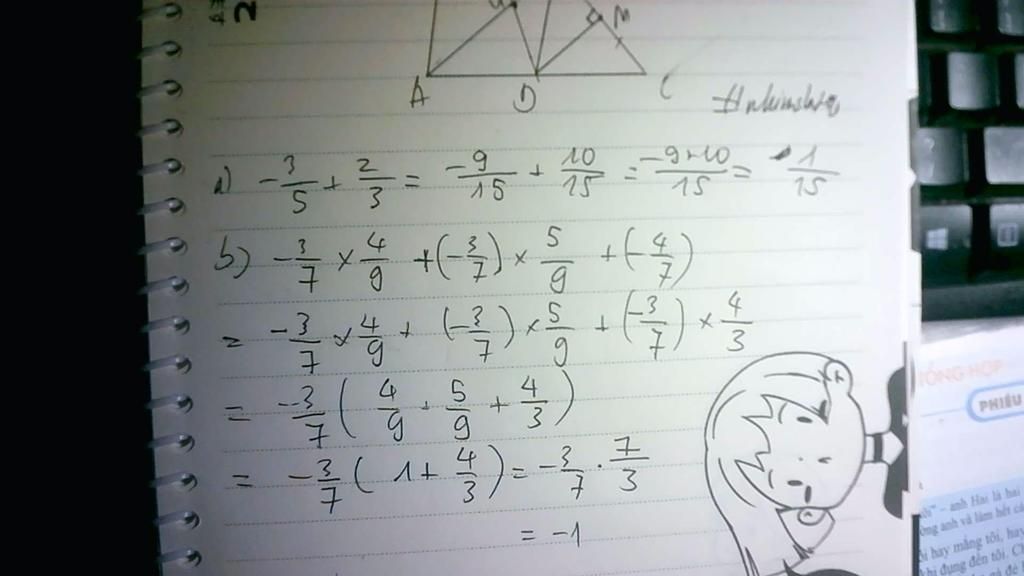 2
M
A D C
a) -3/5 + 2/3 = -9/15 + 10/15 = -9+10/15 = 1/15
b) -3/7 × 4/9 + (-3/7) × 5/9 + (-4/7)
= -3/7 × 4/9 + (-3/7) × 5/9 + (-3/7) × 4/3
= -3/7 ( 4/9 + 5/9 + 4/3 )
= -3/7 ( 1 + 4/3 ) = -3/7 . 7/3
= -1
TỔNG HỢP
PHIẾU
– anh Hai là hai
anh và làm hết
hay mắng tôi, hay
đụng đến tôi.